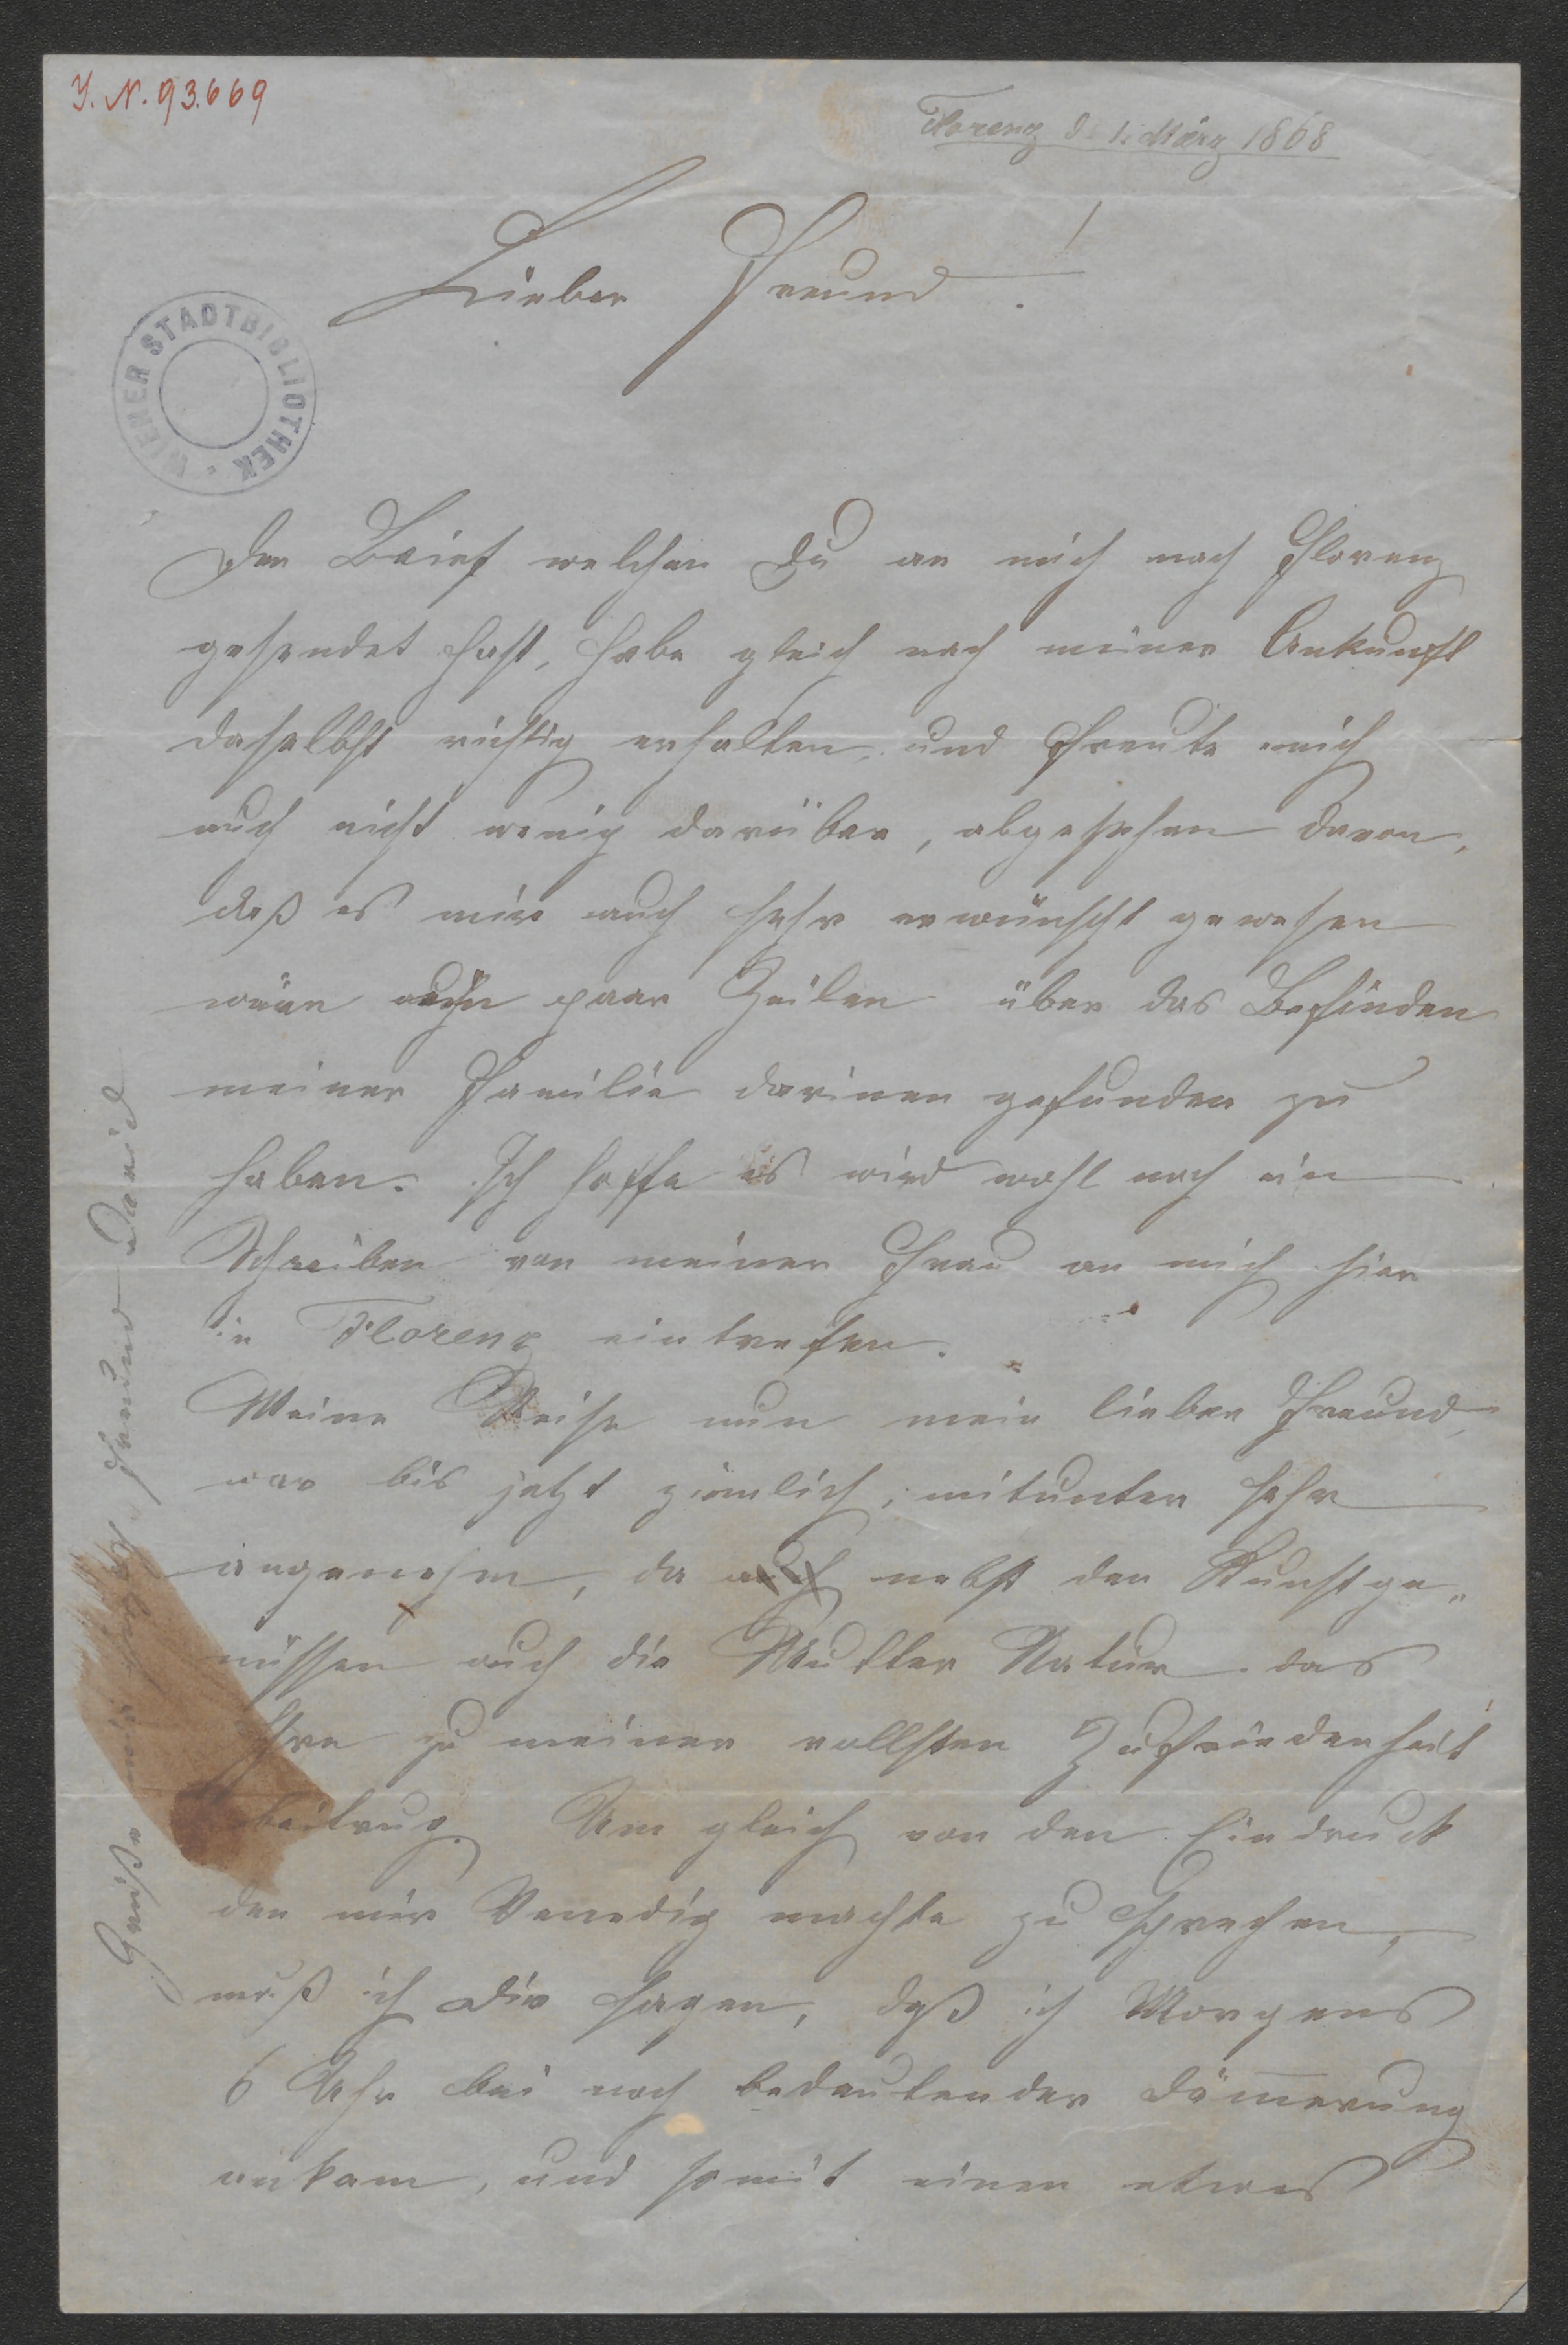 J. N. 93.669
Florenz d. 1. März 1868
Lieber Freund!
WIENER STADTBIBLIOTHEK
Den Brief welchen Du an mich nach Florenz
gesendet hast, habe gleich nach meiner Ankunft
daselbst richtig erhalten, und freute mich
auch nicht wenig darüber, abgesehen davon,
daß es mir auch sehr erwünscht gewesen
wäre paar Zeilen über das Befinden
meiner Familie darinen gefunden zu
haben. Ich hoffe es wird wohl noch ein
Schreiben von meiner Frau an mich hier
in Florenz eintrefen.
Meine Reise nun mein lieber Freund,
war bis jetzt ziemlich, mitunter sehr
angenehm, da auch nebst den Kunstge„
nüssen auch die Mutter Natur das
Ihre zu meiner vollsten Zufriedenheit
beitrug. Um gleich von den Eindruck
den mir Venedig machte zu sprechen,
muß ich Dir sagen, daß ich Morgens
6 Uhr bei noch bedeutender Dämerung
ankam, und somit einen etwas
Grüße mir Freund David